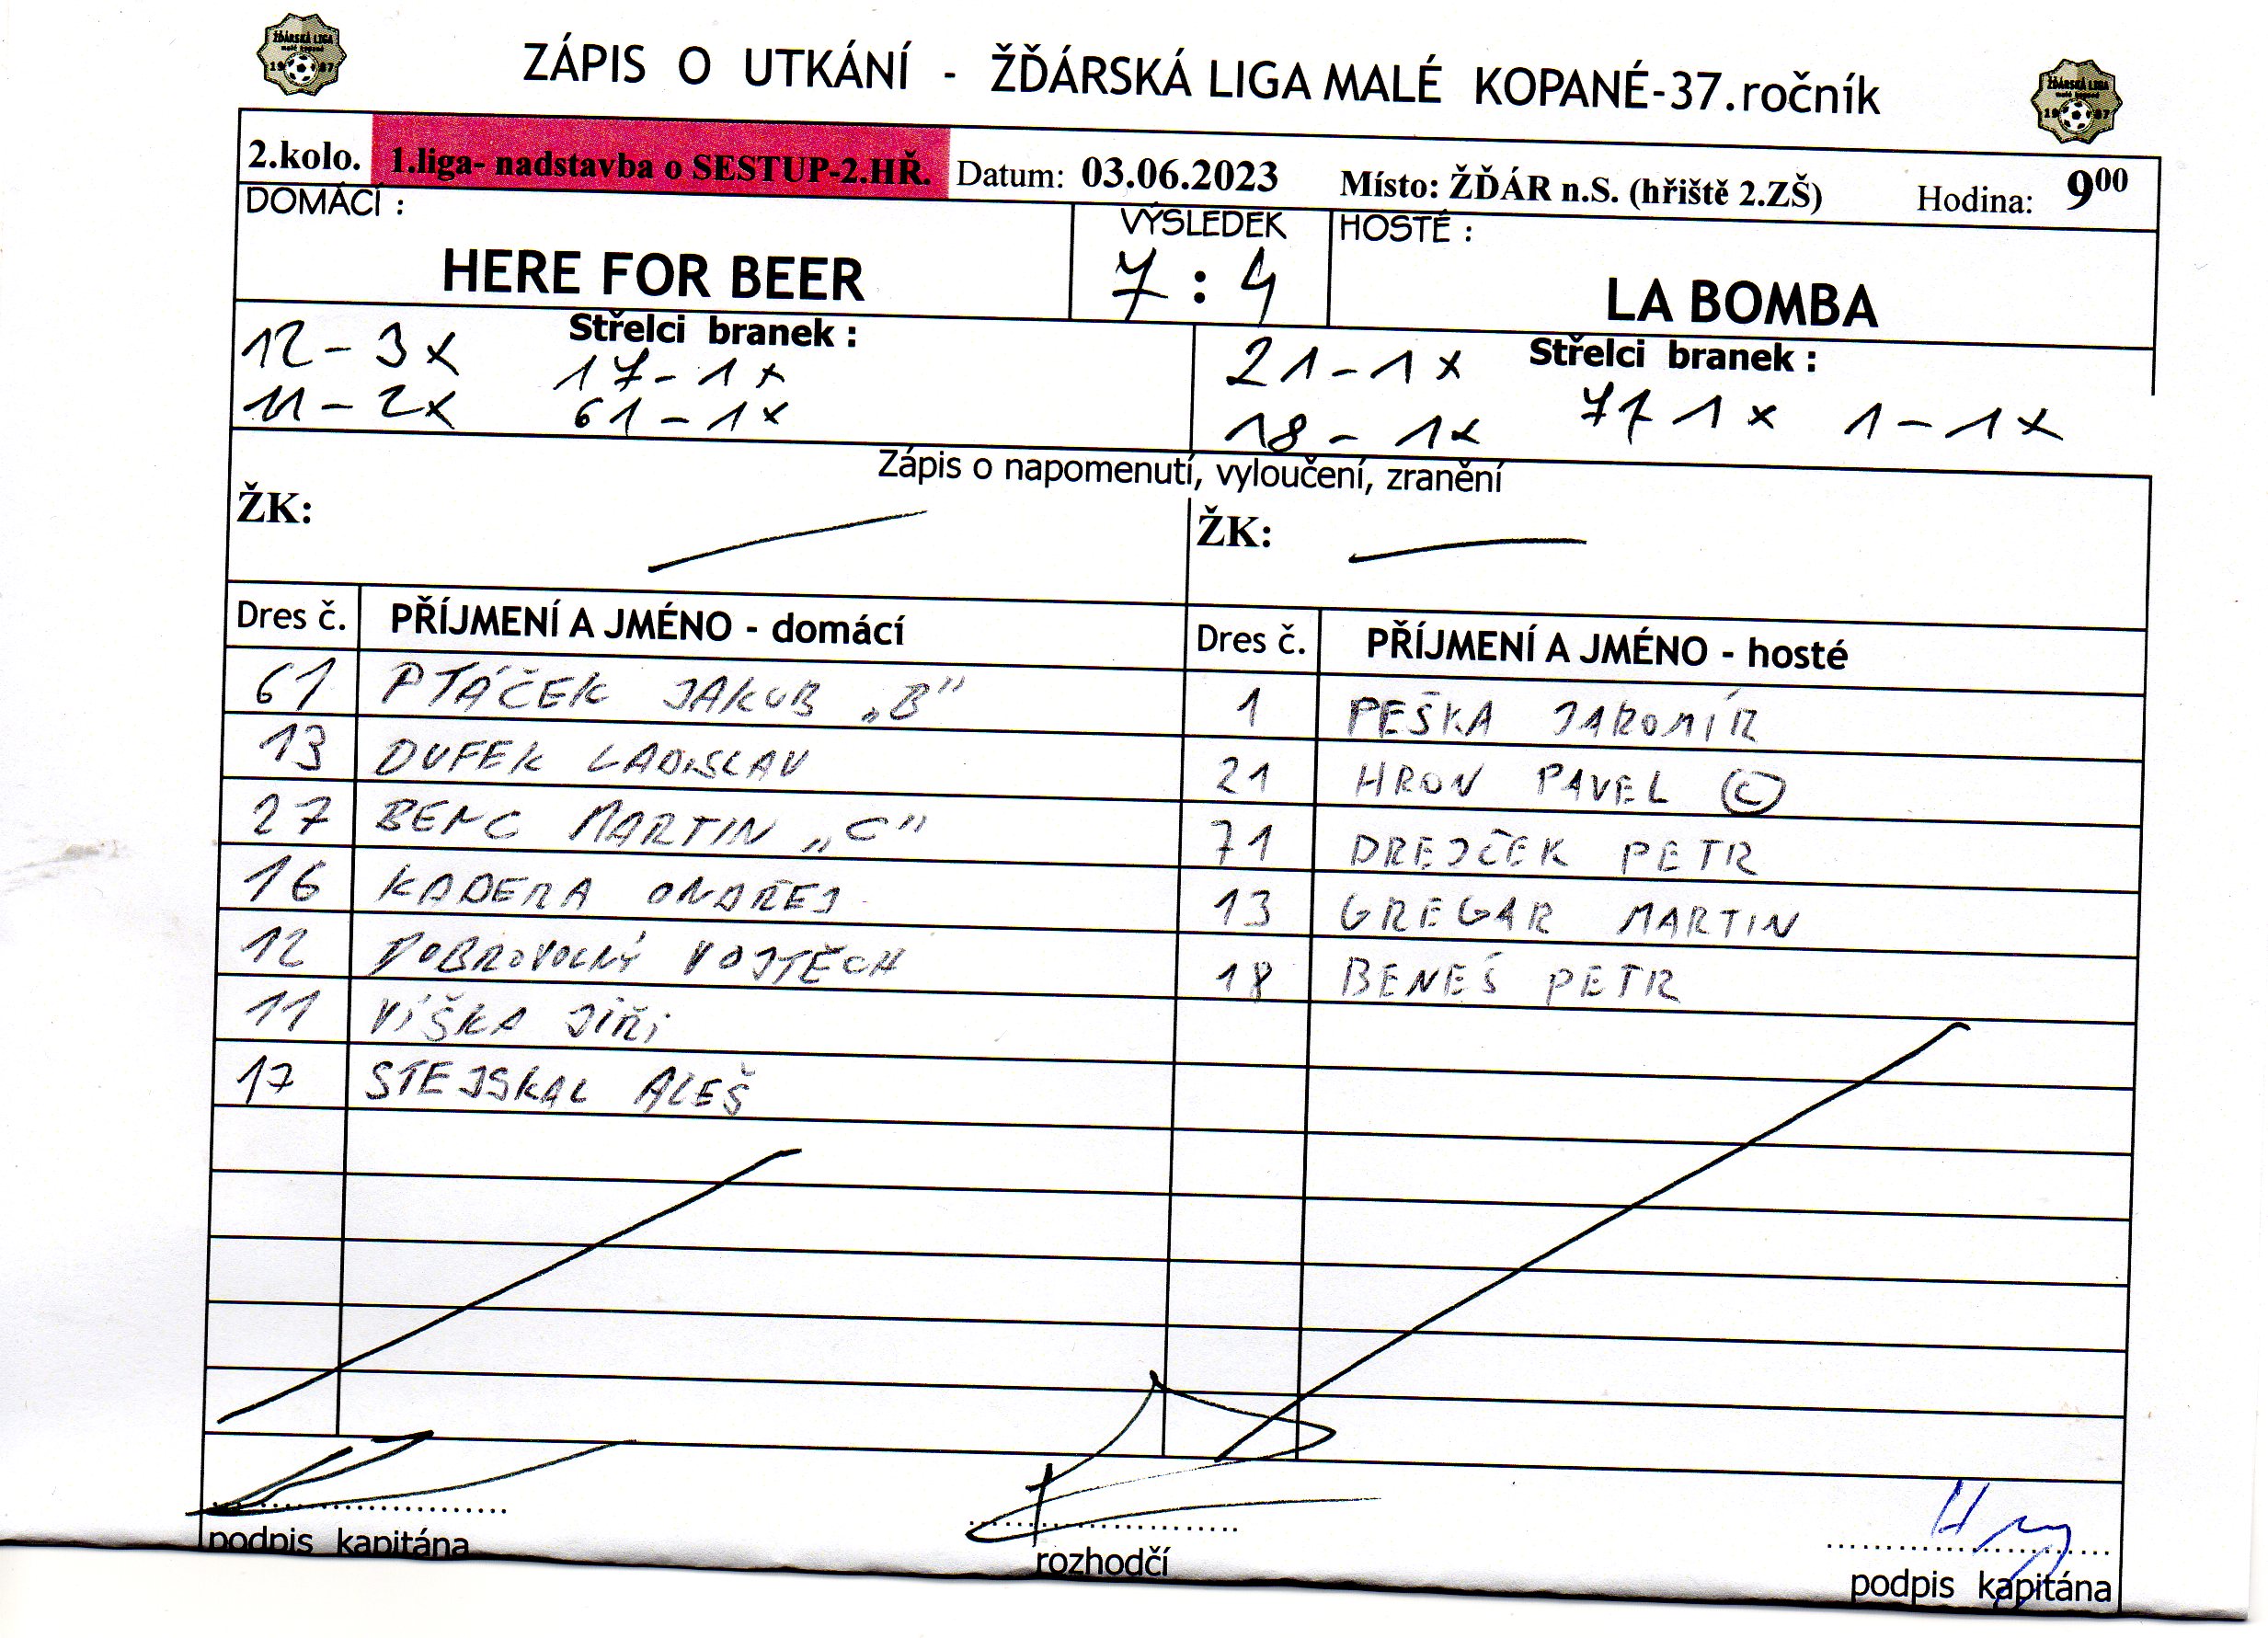 ŽĎÁRSKÁ LIGA
malé kopané
1987
ZÁPIS O UTKÁNÍ - ŽĎÁRSKÁ LIGA MALÉ KOPANÉ-37.ročník
ŽĎÁRSKÁ LIGA
malé kopané
1987
2.kolo. 1.liga- nadstavba o SESTUP-2.HŘ. Datum: 03.06.2023 Místo: ŽĎÁR n.S. (hřiště 2.ZŠ) Hodina: 9⁰⁰
DOMÁCÍ : VÝSLEDEK HOSTÉ :
HERE FOR BEER 7 : 4 LA BOMBA
Střelci branek : Střelci branek :
12 - 3x 17 - 1x 21 - 1x
11 - 2x 61 - 1x 18 - 1x 71 1x 1 - 1x
Zápis o napomenutí, vyloučení, zranění
ŽK: ŽK:
Dres č. PŘÍJMENÍ A JMÉNO - domácí Dres č. PŘÍJMENÍ A JMÉNO - hosté
61 PTÁČEK JAKUB „B" 1 PEŠKA JAROMÍR
13 DUFEK LADISLAV 21 HRON PAVEL ©
27 BENC MARTIN „C" 71 DREJČEK PETR
16 KADERA ONDŘEJ 13 GREGAR MARTIN
12 DOBROVOLNÝ VOJTĚCH 18 BENEŠ PETR
11 VÍŠKA JIŘÍ
17 STEJSKAL ALEŠ
podpis kapitána rozhodčí podpis kapitána